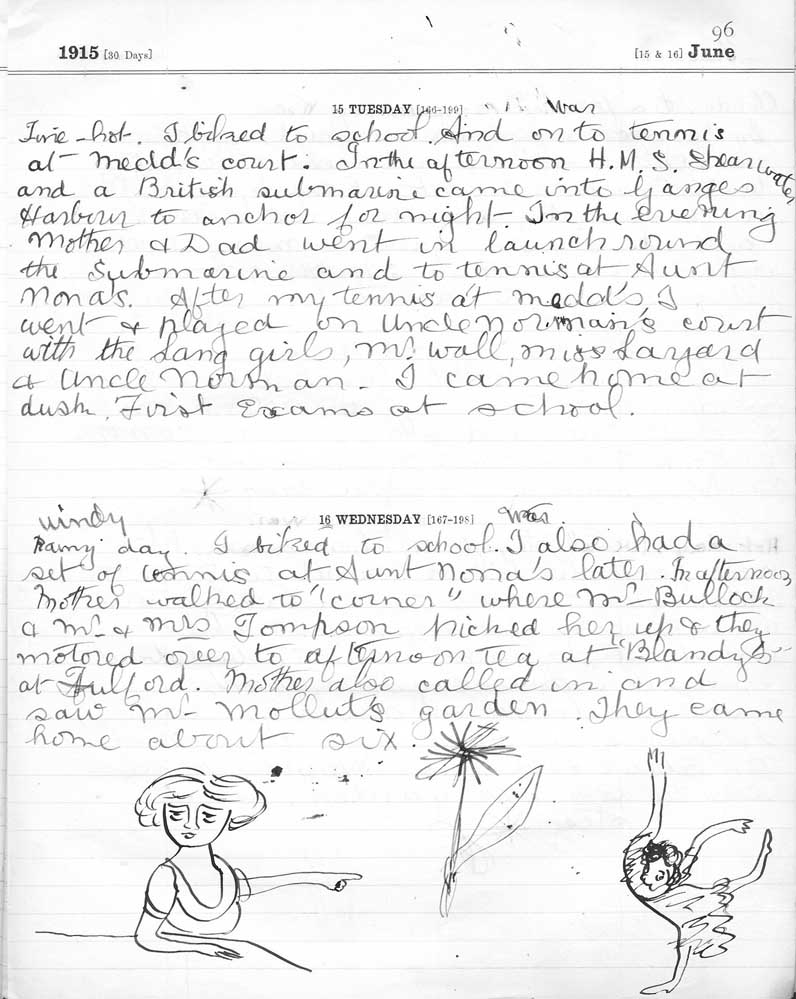 96
1915 [30 Days] [15 & 16] June
15 TUESDAY [166-199] War
Fine - hot. I biked to school. And on to tennis
at Medd's court. In the afternoon H.M.S. Shearwater
and a British submarine came into Ganges
Harbour to anchor for night. In the evening
Mother & Dad went in launch round
the submarine and to tennis at Aunt
Nona's. After my tennis at Medd's I
went & played on Uncle Norman's court
with the Lang girls, Mr. Wall, Miss Layard
& Uncle Norman - I came home at
dusk. First Exams at school.
windy 16 WEDNESDAY [167-198] War.
Rainy day. I biked to school. I also had a
set of tennis at Aunt Nona's later. In afternoon
Mother walked to "corner" where Mr Bullock
& Mr & Mrs Tompson picked her up & they
motored over to afternoon tea at "Blandy's"
at Fulford. Mother also called in and
saw Mr Mollut's garden. They came
home about six.